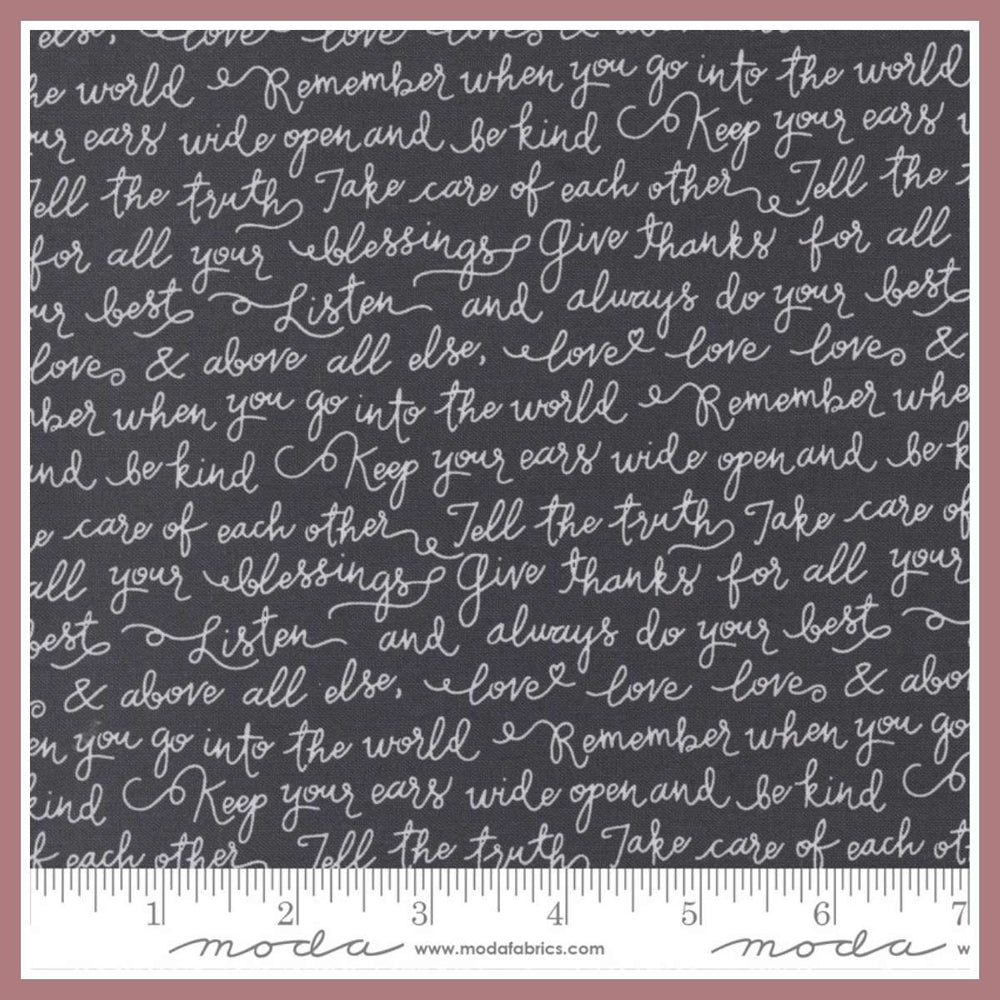 else, love love love & above all
he world Remember when you go into the world
ur ears wide open and be kind Keep your ears
Tell the truth Take care of each other Tell the
for all your blessings Give thanks for all
ur best Listen and always do your best
love & above all else, love love love &
ber when you go into the world Remember whe
nd be kind Keep your ears wide open and be k
e care of each other Tell the truth Take care of
all your blessings Give thanks for all your
best Listen and always do your best
& above all else, love love love & abo
en you go into the world Remember when you go
kind Keep your ears wide open and be kind
f each other Tell the truth Take care of each ot
1 2 3 4 5 6 7
moda www.modafabrics.com moda w